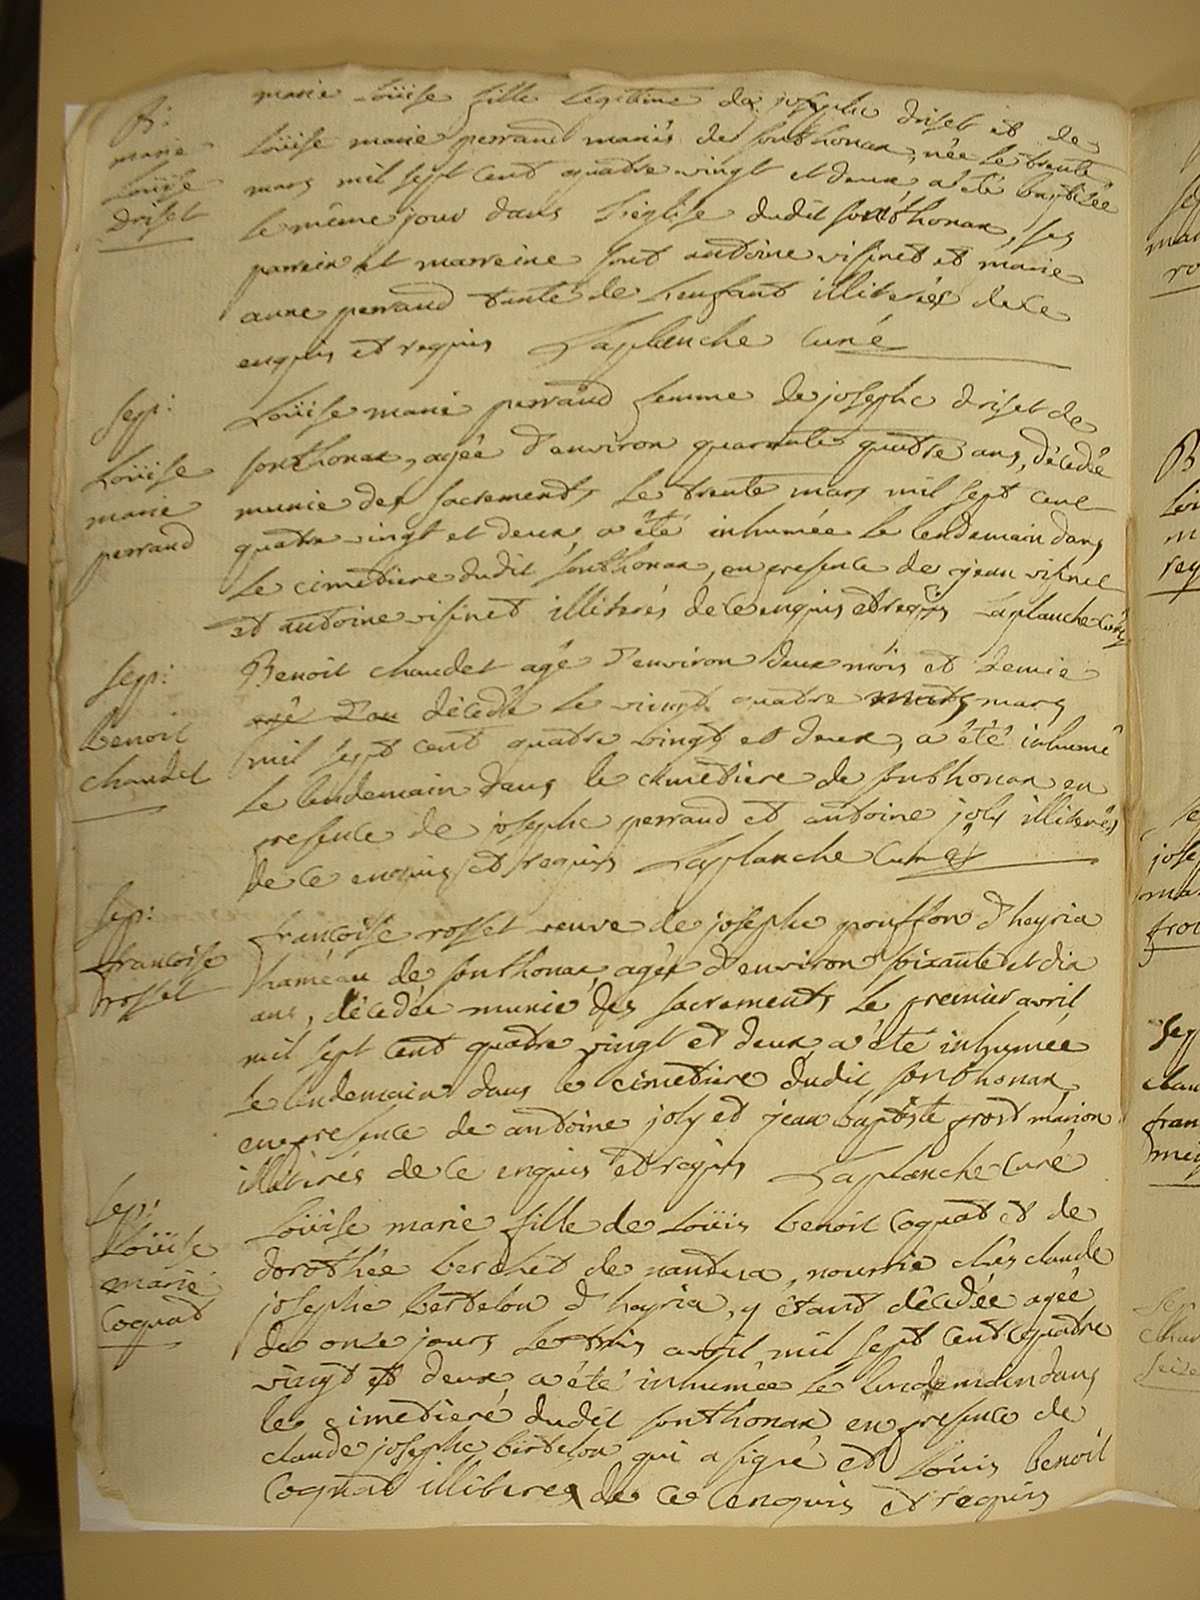 B:
marie
Loüise
Driset
marie Loüise fille legitime de josephe driset et de
Loüise marie perraud mariés de sonthonax, née le trente
mars mil sept cent quatre vingt et deux a été baptisée
le même jour dans l'eglise dudit sonthonax, ses
parrein et marreine sont antoine visinet et marie
anne perraud tante de l'enfant illiterés de ce
enquis et requis Laplanche Curé
sep:
Loüise
marie
perraud
Loüise marie perraud femme de josephe driset de
sonthonax, agée d'environ quarante quatre ans, décédée
munie des sacrements le trente mars mil sept cent
quatre vingt et deux, a été inhumée le lendemain dans
le cimetiere dudit sonthonax, en presence de jean visinet
et antoine visinet illiterés de ce enquis et requis Laplanche Curé
sep:
benoit
chaudet
Benoit chaudet agé d'environ deux mois et demie
agé d'an décédé le vingt quatre mars mars
mil sept cent quatre vingt et deux, a été inhumé
le lendemain dans le cimetiere de sonthonax en
presence de josephe perraud et antoine joly illiterés
de ce enquis et requis Laplanche Curé
sep:
francoise
rosset
francoise rosset veuve de josephe pouffon d'heyria
hameau de sonthonax, agée d'environ soixante et dix
ans, décédée munie des sacrements le premier avril
mil sept cent quatre vingt et deux a été inhumée
le lendemain dans le cimetiere dudit sonthonax,
en presence de antoine joly et jean baptiste prost marion
illiterés de ce enquis et requis Laplanche Curé
sep:
Loüise
marie
Coquat
Loüise marie fille de Loüis benoit Coquat et de
dorothée berchet de nantua, nourrie chés claude
josephe bertelon d'heyria, y étant décédée agée
de onze jours le trois avril mil sept cent quatre
vingt et deux, a été inhumée le lendemain dans
le cimetiere dudit sonthonax en presence de
claude josephe bertelon qui a signé et Loüis benoit
Coquat illiteres de ce enquis et requis